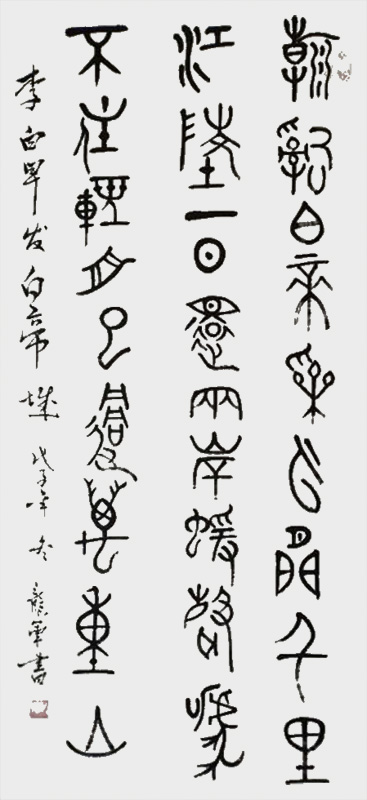 朝辭白帝采云間千里
江陵一日還兩岸蝯聲啼
不住輕舟已過萬重山
李白早发白帝城 戊子年冬 軍書